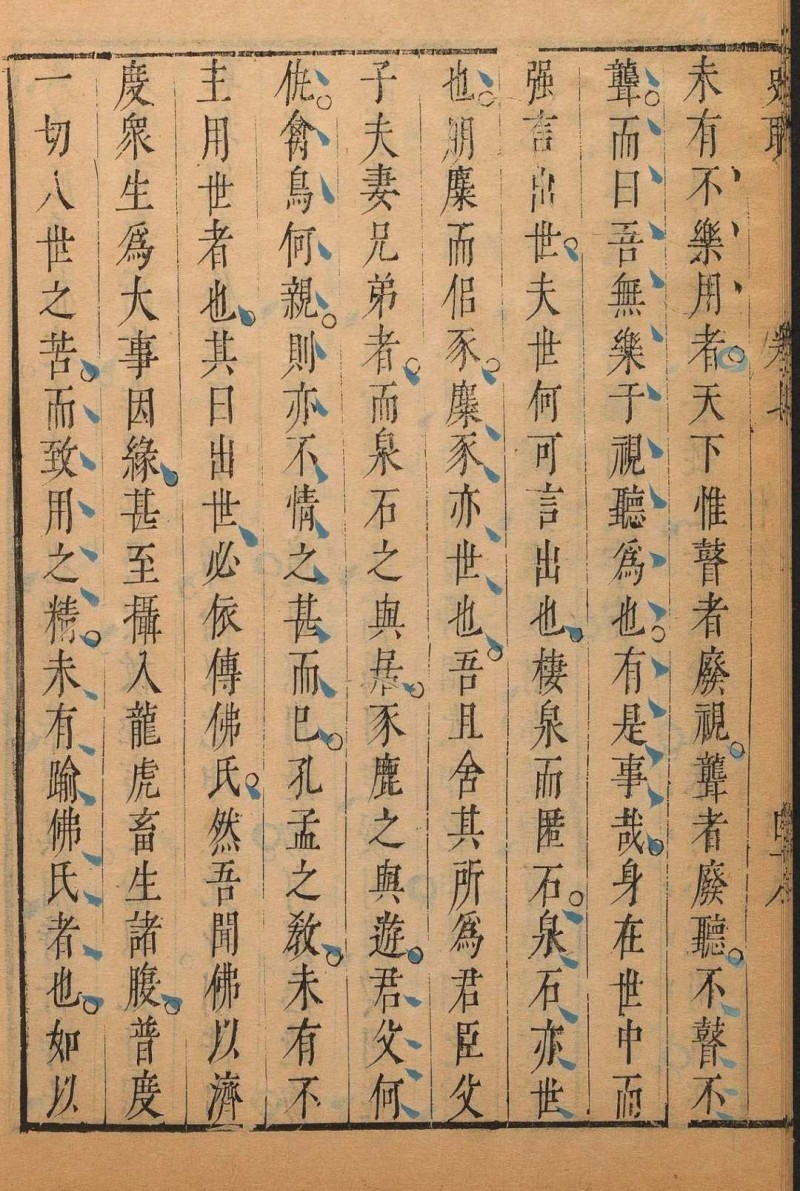 未有不樂用者。天下惟瞽者廢視。聾者廢聽。不瞽不
聾。而曰吾無樂于視聽爲也。有是事哉。身在世中而
强言出世。夫世何可言出也。棲泉而匿石。泉石亦世
也。朋麋而侶豕。麋豕亦世也。吾且舍其所爲君臣父
子夫妻兄弟者。而泉石之與居。豕鹿之與遊。君父何
仇。禽鳥何親。則亦不情之甚而已。孔孟之教。未有不
主用世者也。其曰出世。必依傳佛氏。然吾聞佛以濟
度衆生爲大事因緣。甚至攝入龍虎畜生諸腹。普度
一切入世之苦。而致用之精。未有踰佛氏者也。如以